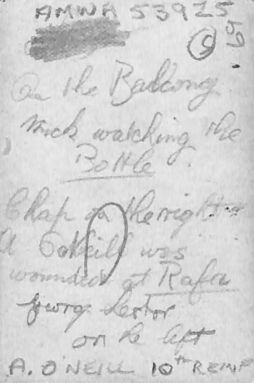 AMWA 53925
On the Balcony
Mick watching the
Bottle
Chap on the right
A O'Neill was
wounded at Rafa
on the left
A. O'NEILL 10TH REINF